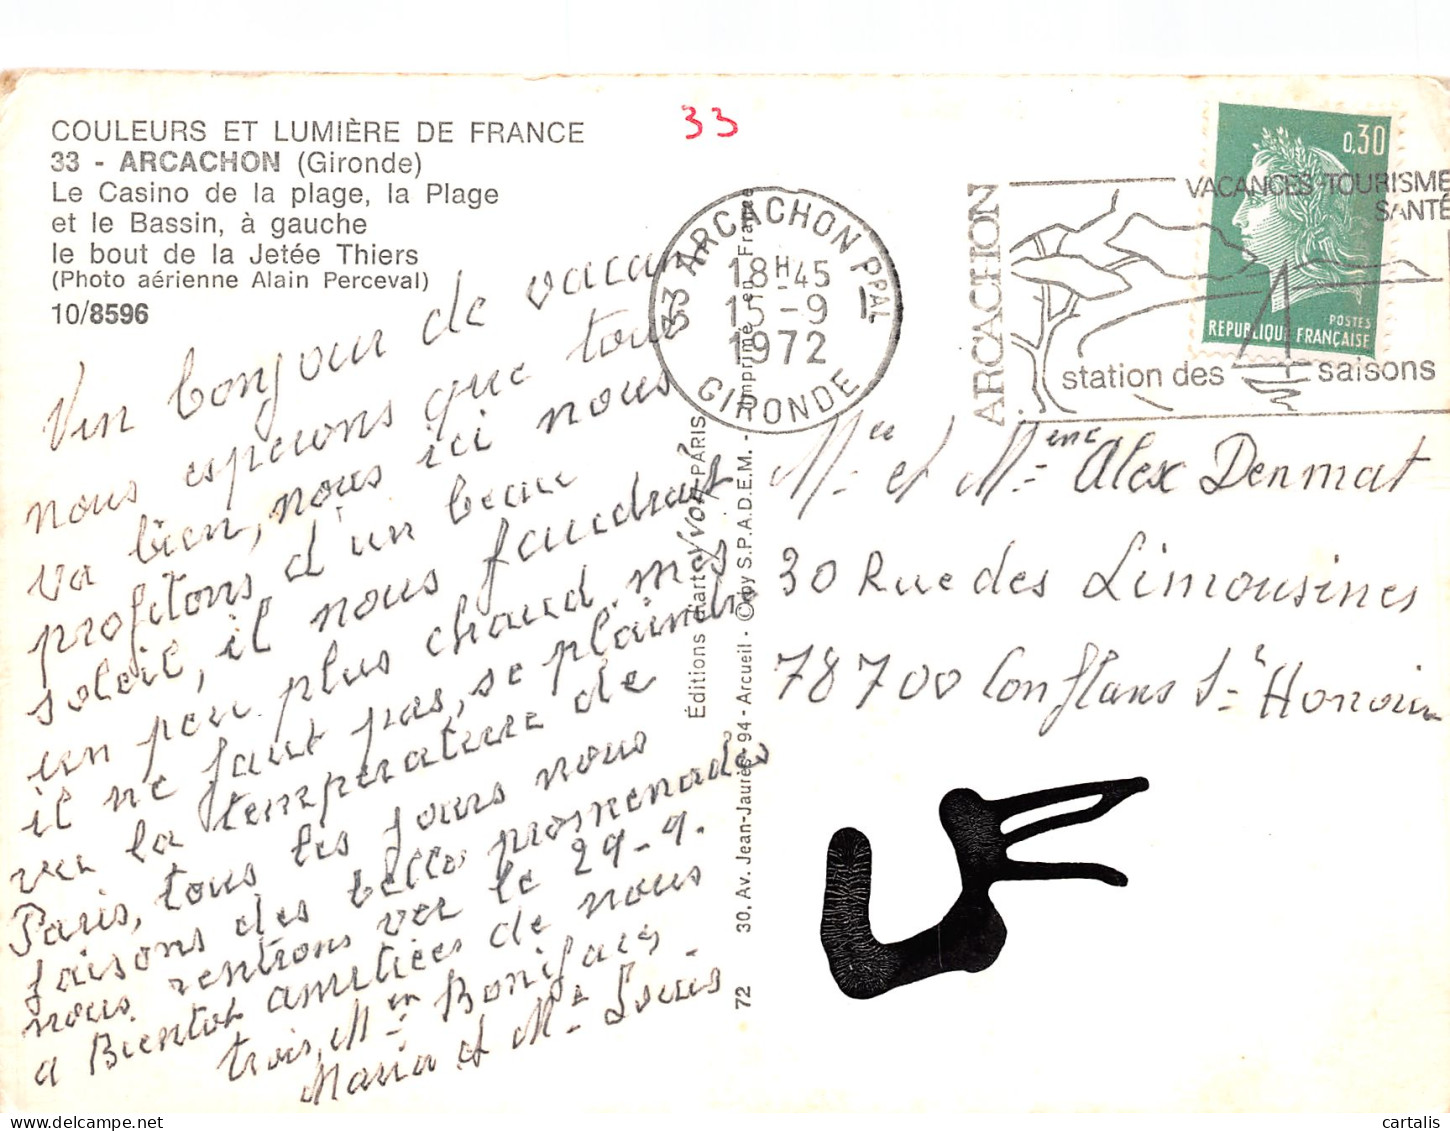 COULEURS ET LUMIÈRE DE FRANCE
33 - ARCACHON (Gironde)
Le Casino de la plage, la Plage
et le Bassin, à gauche
le bout de la Jetée Thiers
(Photo aérienne Alain Perceval)
10/8596
33
33 ARCACHON PPAL
18H45
15-9
1972
GIRONDE
ARCACHON
VACANCES-TOURISME
SANTÉ
station des 4 saisons
0,30
POSTES
REPUBLIQUE FRANÇAISE
Ven bonjour de vacan
nous esperons que tout
va bien, nous ici nous
profitons d'un beau
soleil, il nous faudrait
un peu plus chaud mes
il ne faut pas, se plaindre
ver la temperature de
Paris, tous les jours nous
faisons des belles promenades
nous rentrons ver le 29-9.
a Bientot amitiées de nous
trois, Men Bonifacis
Maria et Mr Louis
Éditions d'art YVON-PARIS
72 30, Av. Jean-Jaurès - 94 - Arcueil - © by S.P.A.D.E.M. - Imprimé en France
Mee et Mme Alex Denmat
30 Rue des Limousines
78700 Conflans Ste Honorin
cartalis